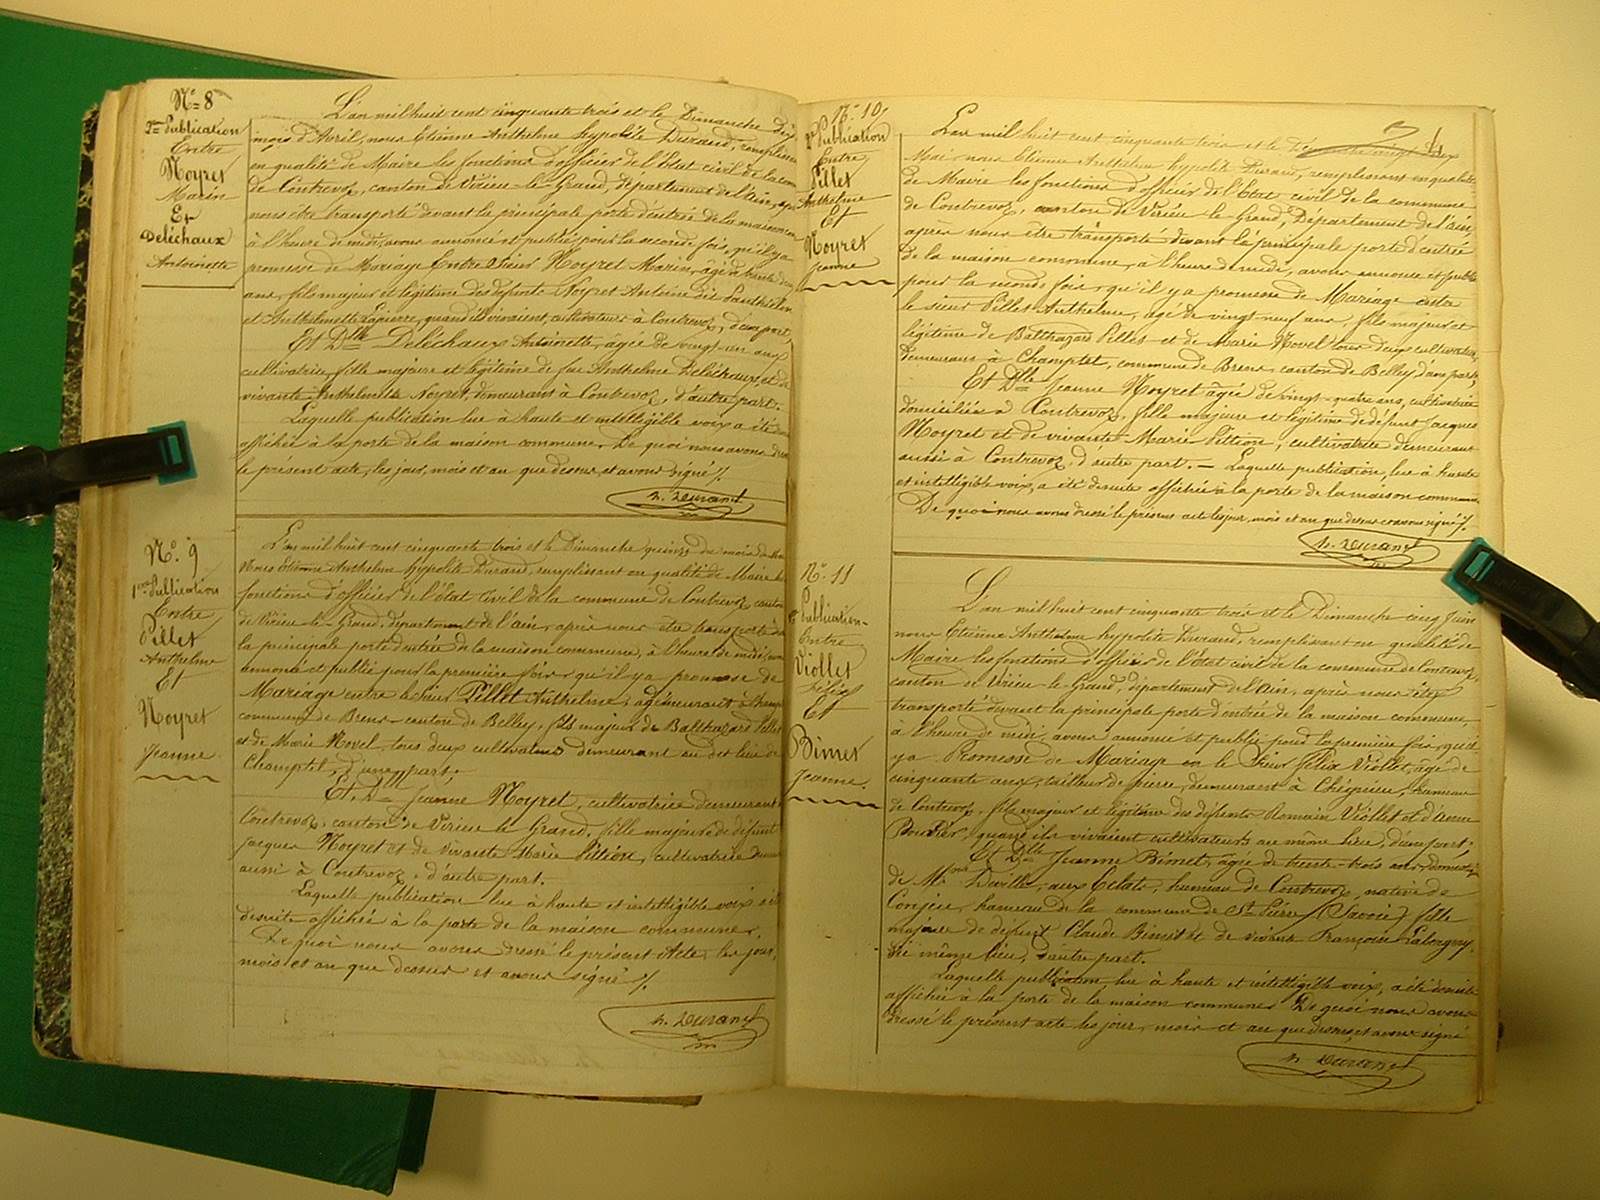 N° 8
2me Publication
Entre
Noyret
Marin
Et
Deléchaux
Antoinette
L'an mil huit cent cinquante trois et le Dimanche dix
mois d'Avril, nous Etienne Anthelme hypolite Durand, remplissant
en qualité de Maire les fonctions d'officier de l'Etat civil de la
de Contrevoz, canton de Virieu-le-Grand, département de l'ain, après
nous être transporté devant la principale porte d'entrée de la maison
à l'heure de midi, avons annoncé et publié pour la seconde fois, qu'il y a
promesse de Mariage Entre Sieur Noyret Marin, âgé de trente
ans, fils majeur et légitime des défunts Noyret Antoine dit
et Anthelmette Lapierre, quand ils vivaient, cultivateurs à Contrevoz, d'une part,
Et Dlle Deléchaux Antoinette, âgée de vingt-un ans
cultivatrice, fille majeure et légitime de feu Anthelme Deléchaux, et de
vivante Anthelmette Noyret, demeurant à Contrevoz, d'autre part.
Laquelle publication lue à haute et intelligible voix a été
affichée à la porte de la maison commune. De quoi nous avons
le présent acte, les jour, mois et an que dessus et avons signé /.
h. Durand
N° 9
1ère Publication
Entre
Pillet
Anthelme
Et
Noyret
Jeanne
L'an mil huit cent cinquante trois et le Dimanche quinze du mois de
Nous Etienne Anthelme hypolite Durand, remplissant en qualité de Maire les
fonctions d'officier de l'état civil de la commune de Contrevoz canton
de Virieu-le-Grand, département de l'ain, après nous être transporté
la principale porte d'entrée de la maison commune, à l'heure de midi, avons
annoncé et publié pour la première fois, qu'il y a promesse de
Mariage entre le sieur Pillet Anthelme, demeurant à
commune de Brens canton de Belley, fils majeur de Balthazard Pillet
et de Marie Novel, tous deux cultivateurs demeurant au dit lieu de
Champtel, d'une part.
Et Dlle Jeanne Noyret, cultivatrice demeurant
Contrevoz, canton de Virieu le Grand, fille majeure de défunt
Jacques Noyret et de vivante Marie Pittion, cultivatrice
aussi à Contrevoz, d'autre part.
Laquelle publication lue à haute et intelligible voix
de suite affichée à la porte de la maison commune.
De quoi nous avons dressé le présent Acte, les jour,
mois et an que dessus et avons signé /.
h. Durand
N° 10
2e Publication
Entre
Pillet
Anthelme
Et
Noyret
Jeanne
4
L'an mil huit cent cinquante trois et le
Mai, nous Etienne Anthelme hypolite Durand, remplissant en qualité
de Maire les fonctions d'officier de l'Etat civil de la commune
de Contrevoz, canton de Virieu le Grand, Département de l'ain,
après nous être transporté devant la principale porte d'entrée
de la maison commune, à l'heure de midi, avons annoncé et publié
pour la seconde fois, qu'il y a promesse de Mariage entre
le sieur Pillet Anthelme, âgé de vingt neuf ans, fils majeur et
légitime de Balthazard Pillet et de Marie Novel tous deux cultivateurs,
demeurans à Champtel, commune de Brens canton de Belley d'une part,
Et Dlle Jeanne Noyret âgée de vingt-quatre ans, cultivatrice
domiciliée à Contrevoz, fille majeure et légitime de défunt Jacques
Noyret et de vivante Marie Pittion, cultivatrice demeurant
aussi à Contrevoz, d'autre part. — Laquelle publication, lue à haute
et intelligible voix, a été de suite affichée à la porte de la maison commune
De quoi nous avons dressé le présent acte les jour, mois et an que dessus et avons signé /.
h. Durand
N° 11
1re Publication
Entre
Viollet
Félix
Et
Bimet
Jeanne
L'an mil huit cent cinquante trois et le Dimanche cinq Juin
nous Etienne Anthelme hypolite Durand, remplissant en qualité de
Maire les fonctions d'officier de l'état civil de la commune de Contrevoz,
canton de Virieu le Grand, département de l'ain, après nous être
transporté devant la principale porte d'entrée de la maison commune,
à l'heure de midi, avons annoncé et publié pour la première fois, qu'il
y a Promesse de Mariage entre le Sieur Félix Viollet, âgé de
cinquante ans, tailleur de pierre, demeurant à Chégnieu, hameau
de Contrevoz, fils majeur et légitime des défunts Romain Viollet et d'anne
quand ils vivaient cultivateurs au même lieu, d'une part;
Et Dlle Jeanne Bimet, âgée de trente-trois ans, domestique
de Mr Deville, aux Eclats, hameau de Contrevoz, native de
Conjieu, hameau de la commune de St (Savoie) fille
majeure de défunt Claude Bimet et de vivante Françoise
du même lieu, d'autre part.
Laquelle publication, lue à haute et intelligible voix, a été de suite
affichée à la porte de la maison commune. De quoi nous avons
dressé le présent acte les jour, mois et an que dessus, et avons signé
h. Durand